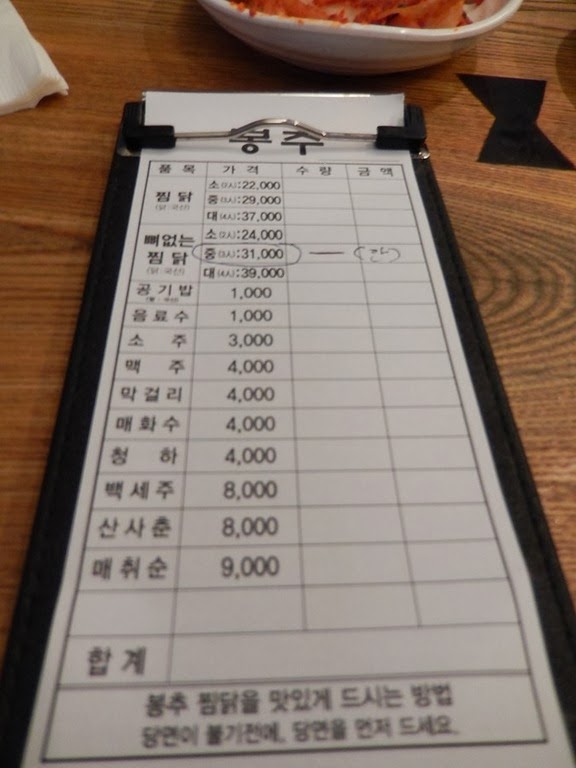 봉추
품 목 가 격 수 량 금 액
찜 닭 (닭:국산)
소(2人):22,000
중(3人):29,000
대(4人):37,000
뼈없는 찜 닭 (닭:국산)
소(2人):24,000
중(3人):31,000 —
대(4人):39,000
공 기 밥 1,000
음 료 수 1,000
소 주 3,000
맥 주 4,000
막 걸 리 4,000
매 화 수 4,000
청 하 4,000
백 세 주 8,000
산 사 춘 8,000
매 취 순 9,000
합 계
봉추 찜닭을 맛있게 드시는 방법
당면이 불기전에, 당면을 먼저 드세요.